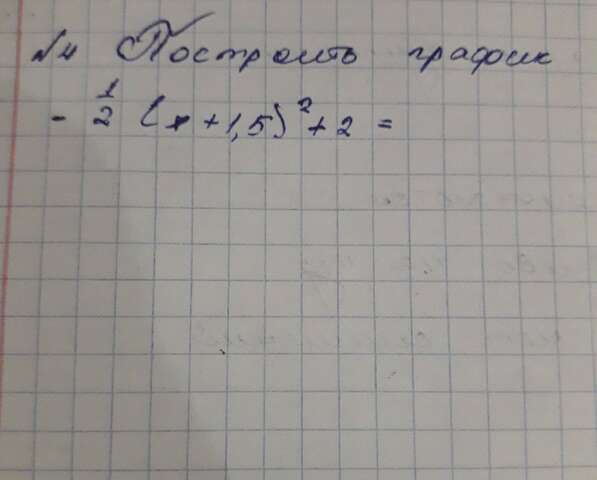 №4 Построить график
- 1/2 (x + 1,5)² + 2 =